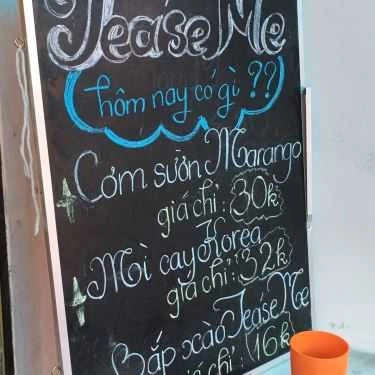 Tea'se Me
hôm nay có gì ??
Cơm sườn Marango
giá chỉ: 30k
Mì cay Korea
giá chỉ: 32k
Bắp xào Tea'se Me
giá chỉ: 16k